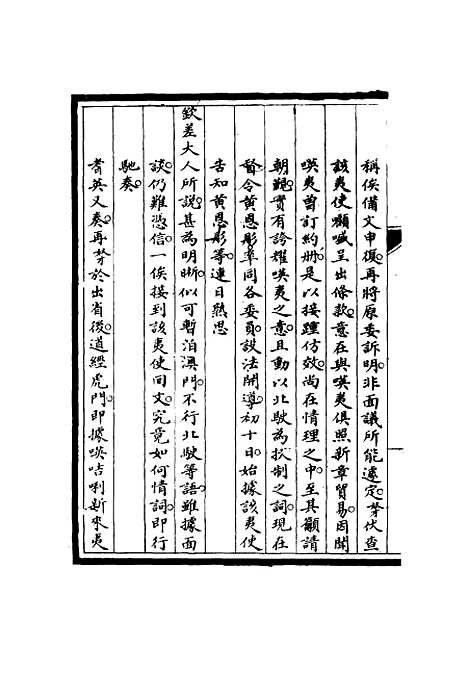 稱俟備文申復再將原委訴明非面議所能遽定䓁伏查
該夷使顛喊呈出條款意在與㗲夷俱照新章貿易因聞
㗲夷曾訂約册是以接踵仿效尚在情理之中至其籲請
朝覲實有誇耀㗲夷之意且動以北駛為挾制之詞現在
督令黃恩彤率同各委員設法開導初十日始據該夷使
告知黃恩彤等連日熟思
欽差大人所說甚為明晰似可暫泊澳門不行北駛等語雖據面
談仍難憑信一俟接到該夷使回文究竟如何情詞即行
馳奏
耆英又奏再䓁於出省後道經虎門即據㗲咭唎新來夷